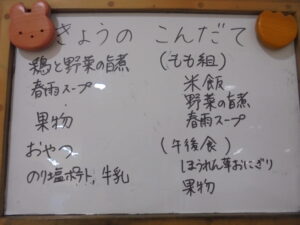 きょうの こんだて
鶏と野菜の旨煮
春雨スープ
果物
おやつ
のり塩ポテト, 牛乳
(もも組)
米飯
野菜の旨煮
春雨スープ
(午後食)
ほうれん草おにぎり
果物